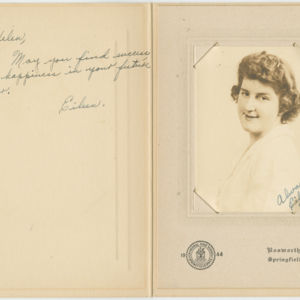 Helen,
May you find success
happiness in your future
Eileen.
19 44
Bosworth
Springfield